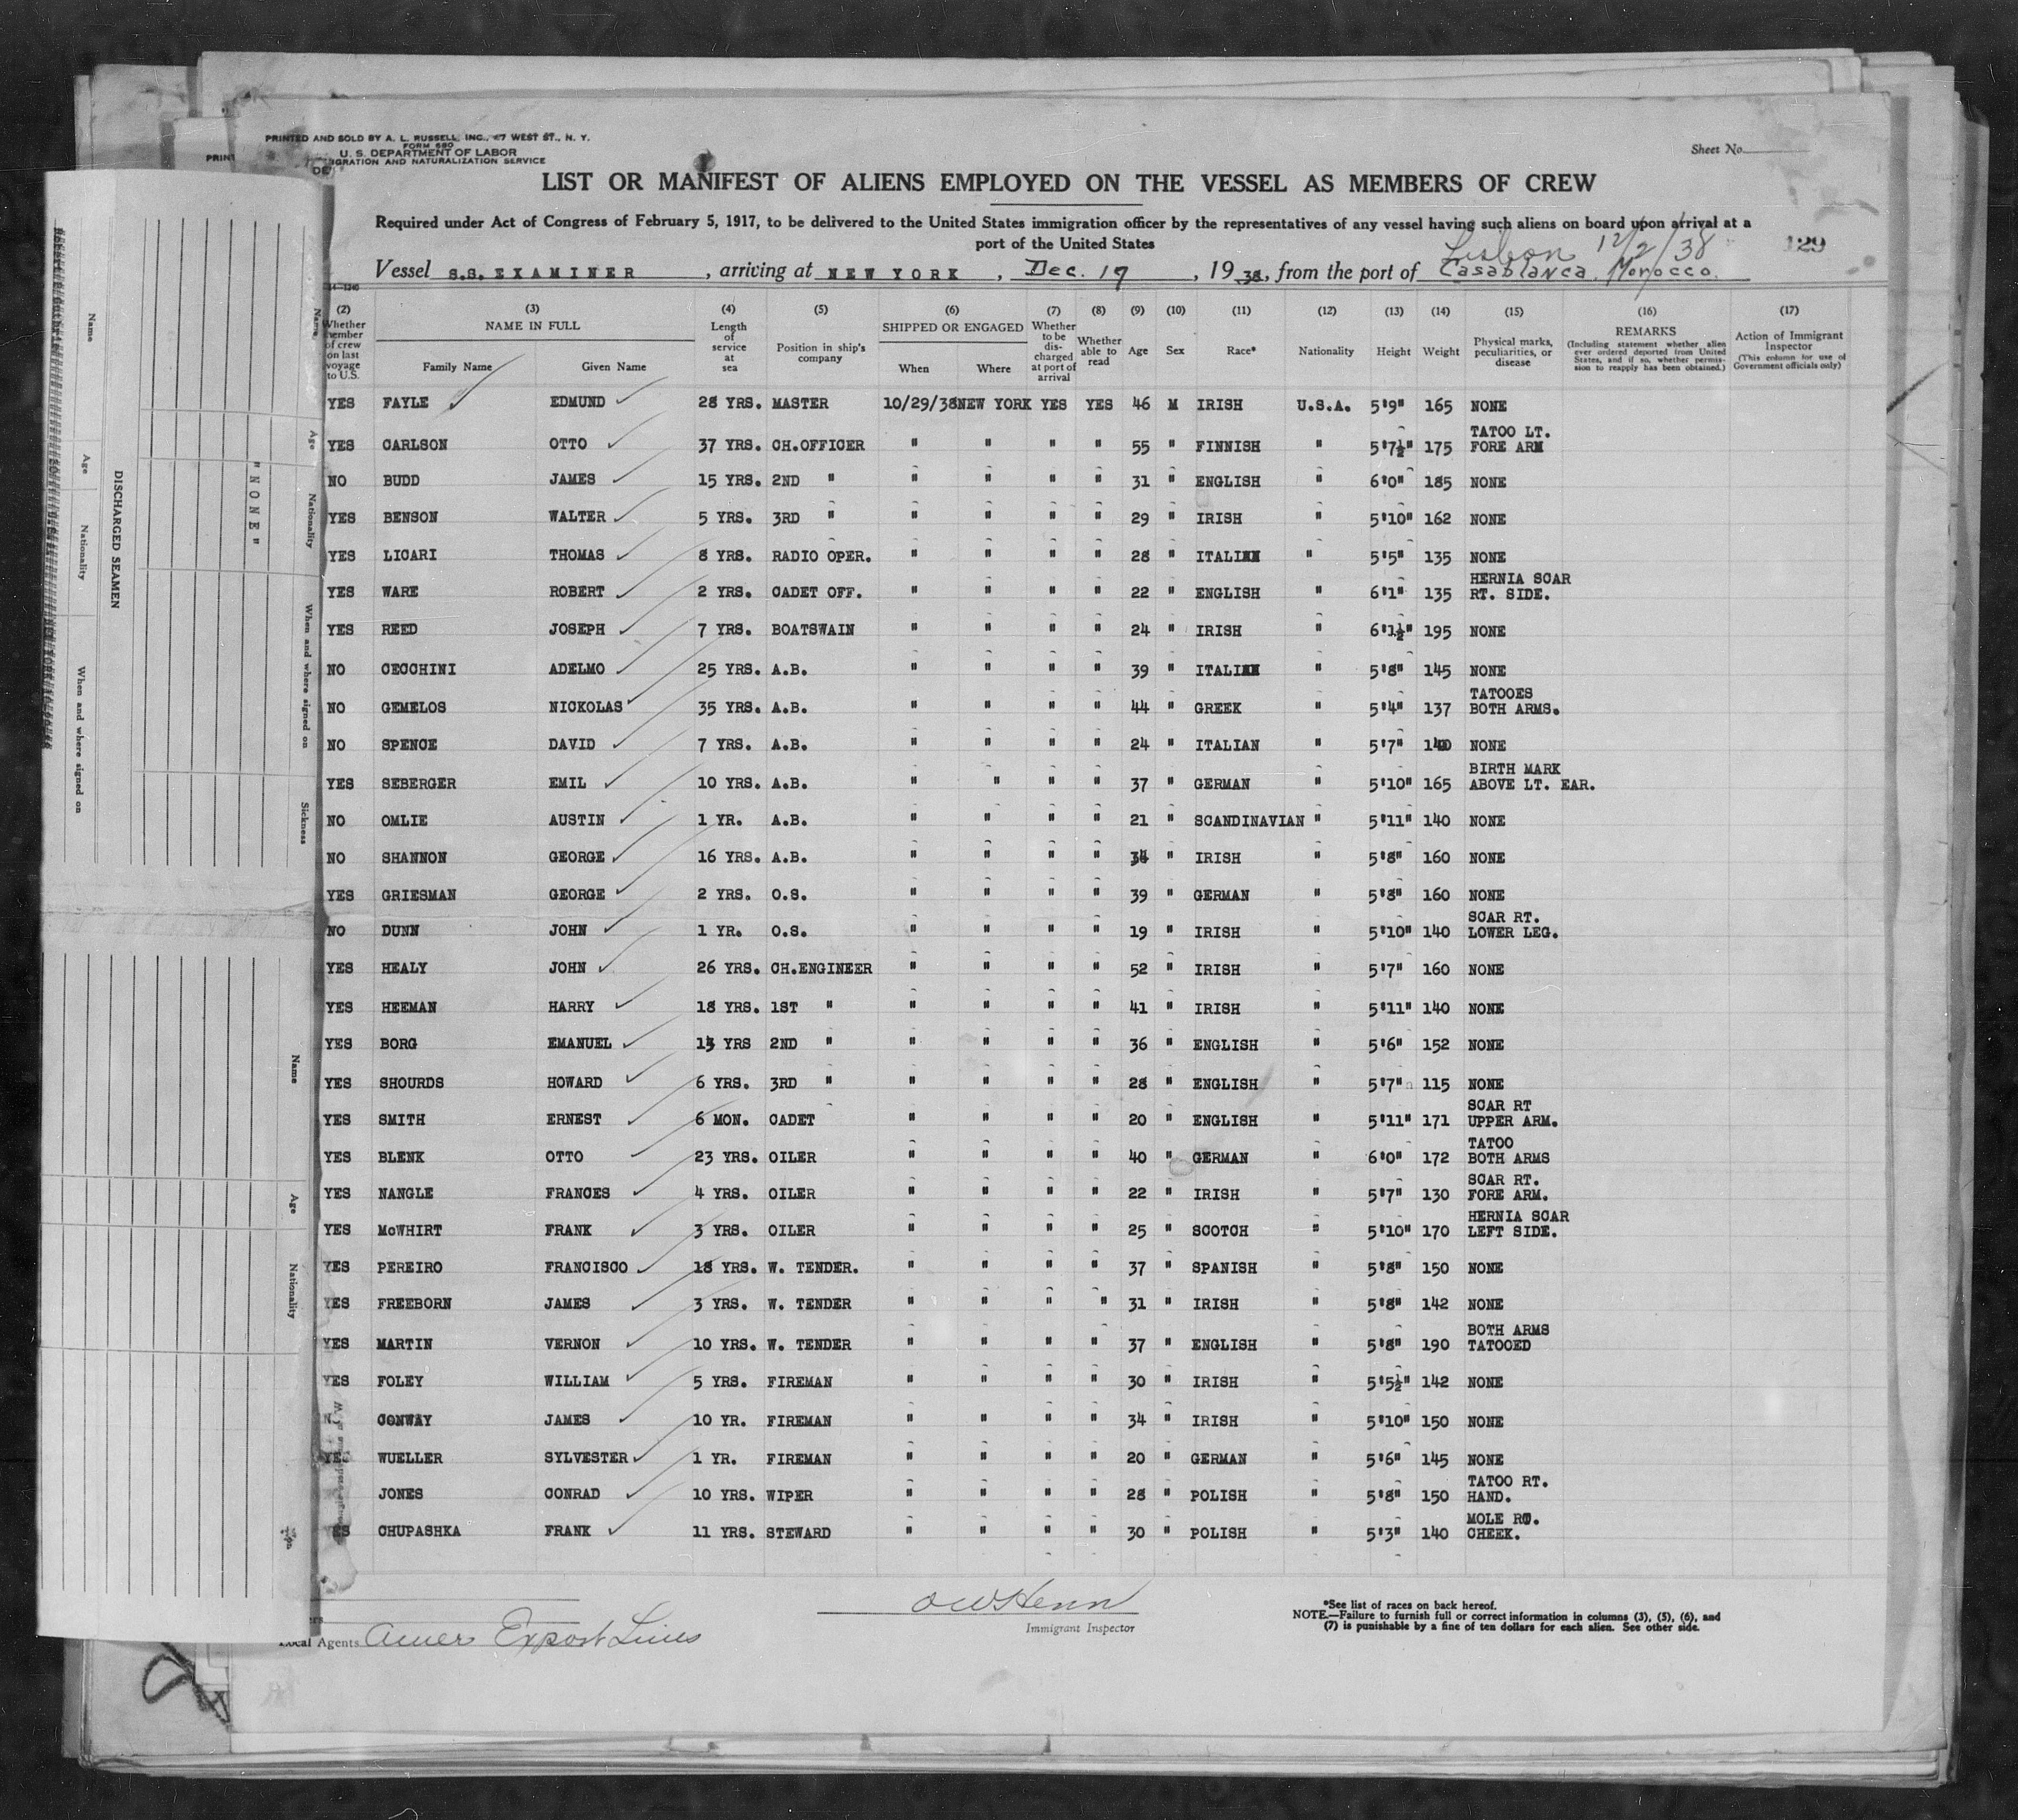 PRINTED AND SOLD BY A. L. RUSSELL, INC., 47 WEST ST., N. Y.
FORM 680
U. S. DEPARTMENT OF LABOR
IGRATION AND NATURALIZATION SERVICE
PRINT
Sheet No.
LIST OR MANIFEST OF ALIENS EMPLOYED ON THE VESSEL AS MEMBERS OF CREW
Required under Act of Congress of February 5, 1917, to be delivered to the United States immigration officer by the representatives of any vessel having such aliens on board upon arrival at a
port of the United States
Lisbon 12/2/38
129
Vessel S.S. EXAMINER, arriving at NEW YORK, Dec. 19, 1938, from the port of Casablanca, Morocco.
(2) (3) (4) (5) (6) (7) (8) (9) (10) (11) (12) (13) (14) (15) (16) (17)
Whether member of crew on last voyage to U.S.
NAME IN FULL
Family Name Given Name
Length of service at sea
Position in ship's company
SHIPPED OR ENGAGED
When Where
Whether to be discharged at port of arrival
Whether able to read
Age
Sex
Race*
Nationality
Height
Weight
Physical marks, peculiarities, or disease
REMARKS
(Including statement whether alien ever ordered deported from United States, and if so, whether permission to reapply has been obtained.)
Action of Immigrant Inspector
(This column for use of Government officials only)
YES FAYLE EDMUND 28 YRS. MASTER 10/29/38 NEW YORK YES YES 46 M IRISH U.S.A. 5'9" 165 NONE
YES CARLSON OTTO 37 YRS. CH.OFFICER " " " " 55 " FINNISH " 5'7½" 175 TATOO LT. FORE ARM
NO BUDD JAMES 15 YRS. 2ND " " " " " 31 " ENGLISH " 6'0" 185 NONE
YES BENSON WALTER 5 YRS. 3RD " " " " " 29 " IRISH " 5'10" 162 NONE
YES LICARI THOMAS 8 YRS. RADIO OPER. " " " " 28 " ITALIAN " 5'5" 135 NONE
YES WARE ROBERT 2 YRS. CADET OFF. " " " " 22 " ENGLISH " 6'1" 135 HERNIA SCAR RT. SIDE.
YES REED JOSEPH 7 YRS. BOATSWAIN " " " " 24 " IRISH " 6'1½" 195 NONE
NO CECCHINI ADELMO 25 YRS. A.B. " " " " 39 " ITALIAN " 5'8" 145 NONE
NO GEMELOS NICKOLAS 35 YRS. A.B. " " " " 44 " GREEK " 5'4" 137 TATOOES BOTH ARMS.
NO SPENCE DAVID 7 YRS. A.B. " " " " 24 " ITALIAN " 5'7" 140 NONE
YES SEBERGER EMIL 10 YRS. A.B. " " " " 37 " GERMAN " 5'10" 165 BIRTH MARK ABOVE LT. EAR.
NO OMLIE AUSTIN 1 YR. A.B. " " " " 21 " SCANDINAVIAN " 5'11" 140 NONE
NO SHANNON GEORGE 16 YRS. A.B. " " " " 34 " IRISH " 5'8" 160 NONE
YES GRIESMAN GEORGE 2 YRS. O.S. " " " " 39 " GERMAN " 5'8" 160 NONE
NO DUNN JOHN 1 YR. O.S. " " " " 19 " IRISH " 5'10" 140 SCAR RT. LOWER LEG.
YES HEALY JOHN 26 YRS. CH.ENGINEER " " " " 52 " IRISH " 5'7" 160 NONE
YES HEEMAN HARRY 18 YRS. 1ST " " " " " 41 " IRISH " 5'11" 140 NONE
YES BORG EMANUEL 13 YRS 2ND " " " " " 36 " ENGLISH " 5'6" 152 NONE
YES SHOURDS HOWARD 6 YRS. 3RD " " " " " 28 " ENGLISH " 5'7" 115 NONE
YES SMITH ERNEST 6 MON. CADET " " " " 20 " ENGLISH " 5'11" 171 SCAR RT UPPER ARM.
YES BLENK OTTO 23 YRS. OILER " " " " 40 " GERMAN " 6'0" 172 TATOO BOTH ARMS
YES NANGLE FRANCES 4 YRS. OILER " " " " 22 " IRISH " 5'7" 130 SCAR RT. FORE ARM.
YES McWHIRT FRANK 3 YRS. OILER " " " " 25 " SCOTCH " 5'10" 170 HERNIA SCAR LEFT SIDE.
YES PEREIRO FRANCISCO 18 YRS. W. TENDER. " " " " 37 " SPANISH " 5'8" 150 NONE
YES FREEBORN JAMES 3 YRS. W. TENDER " " " " 31 " IRISH " 5'8" 142 NONE
YES MARTIN VERNON 10 YRS. W. TENDER " " " " 37 " ENGLISH " 5'8" 190 BOTH ARMS TATOOED
YES FOLEY WILLIAM 5 YRS. FIREMAN " " " " 30 " IRISH " 5'5½" 142 NONE
CONWAY JAMES 10 YR. FIREMAN " " " " 34 " IRISH " 5'10" 150 NONE
YES WUELLER SYLVESTER 1 YR. FIREMAN " " " " 20 " GERMAN " 5'6" 145 NONE
JONES CONRAD 10 YRS. WIPER " " " " 28 " POLISH " 5'8" 150 TATOO RT. HAND.
YES CHUPASHKA FRANK 11 YRS. STEWARD " " " " 30 " POLISH " 5'3" 140 MOLE RT. CHEEK.
Local Agents Amer Export Lines
O W Henn
Immigrant Inspector
*See list of races on back hereof.
NOTE.—Failure to furnish full or correct information in columns (3), (5), (6), and
(7) is punishable by a fine of ten dollars for each alien. See other side.
DISCHARGED SEAMEN
Name Age Nationality When and where signed on
Name Age Nationality When and where signed on Sickness
"NONE"
Name Age Nationality